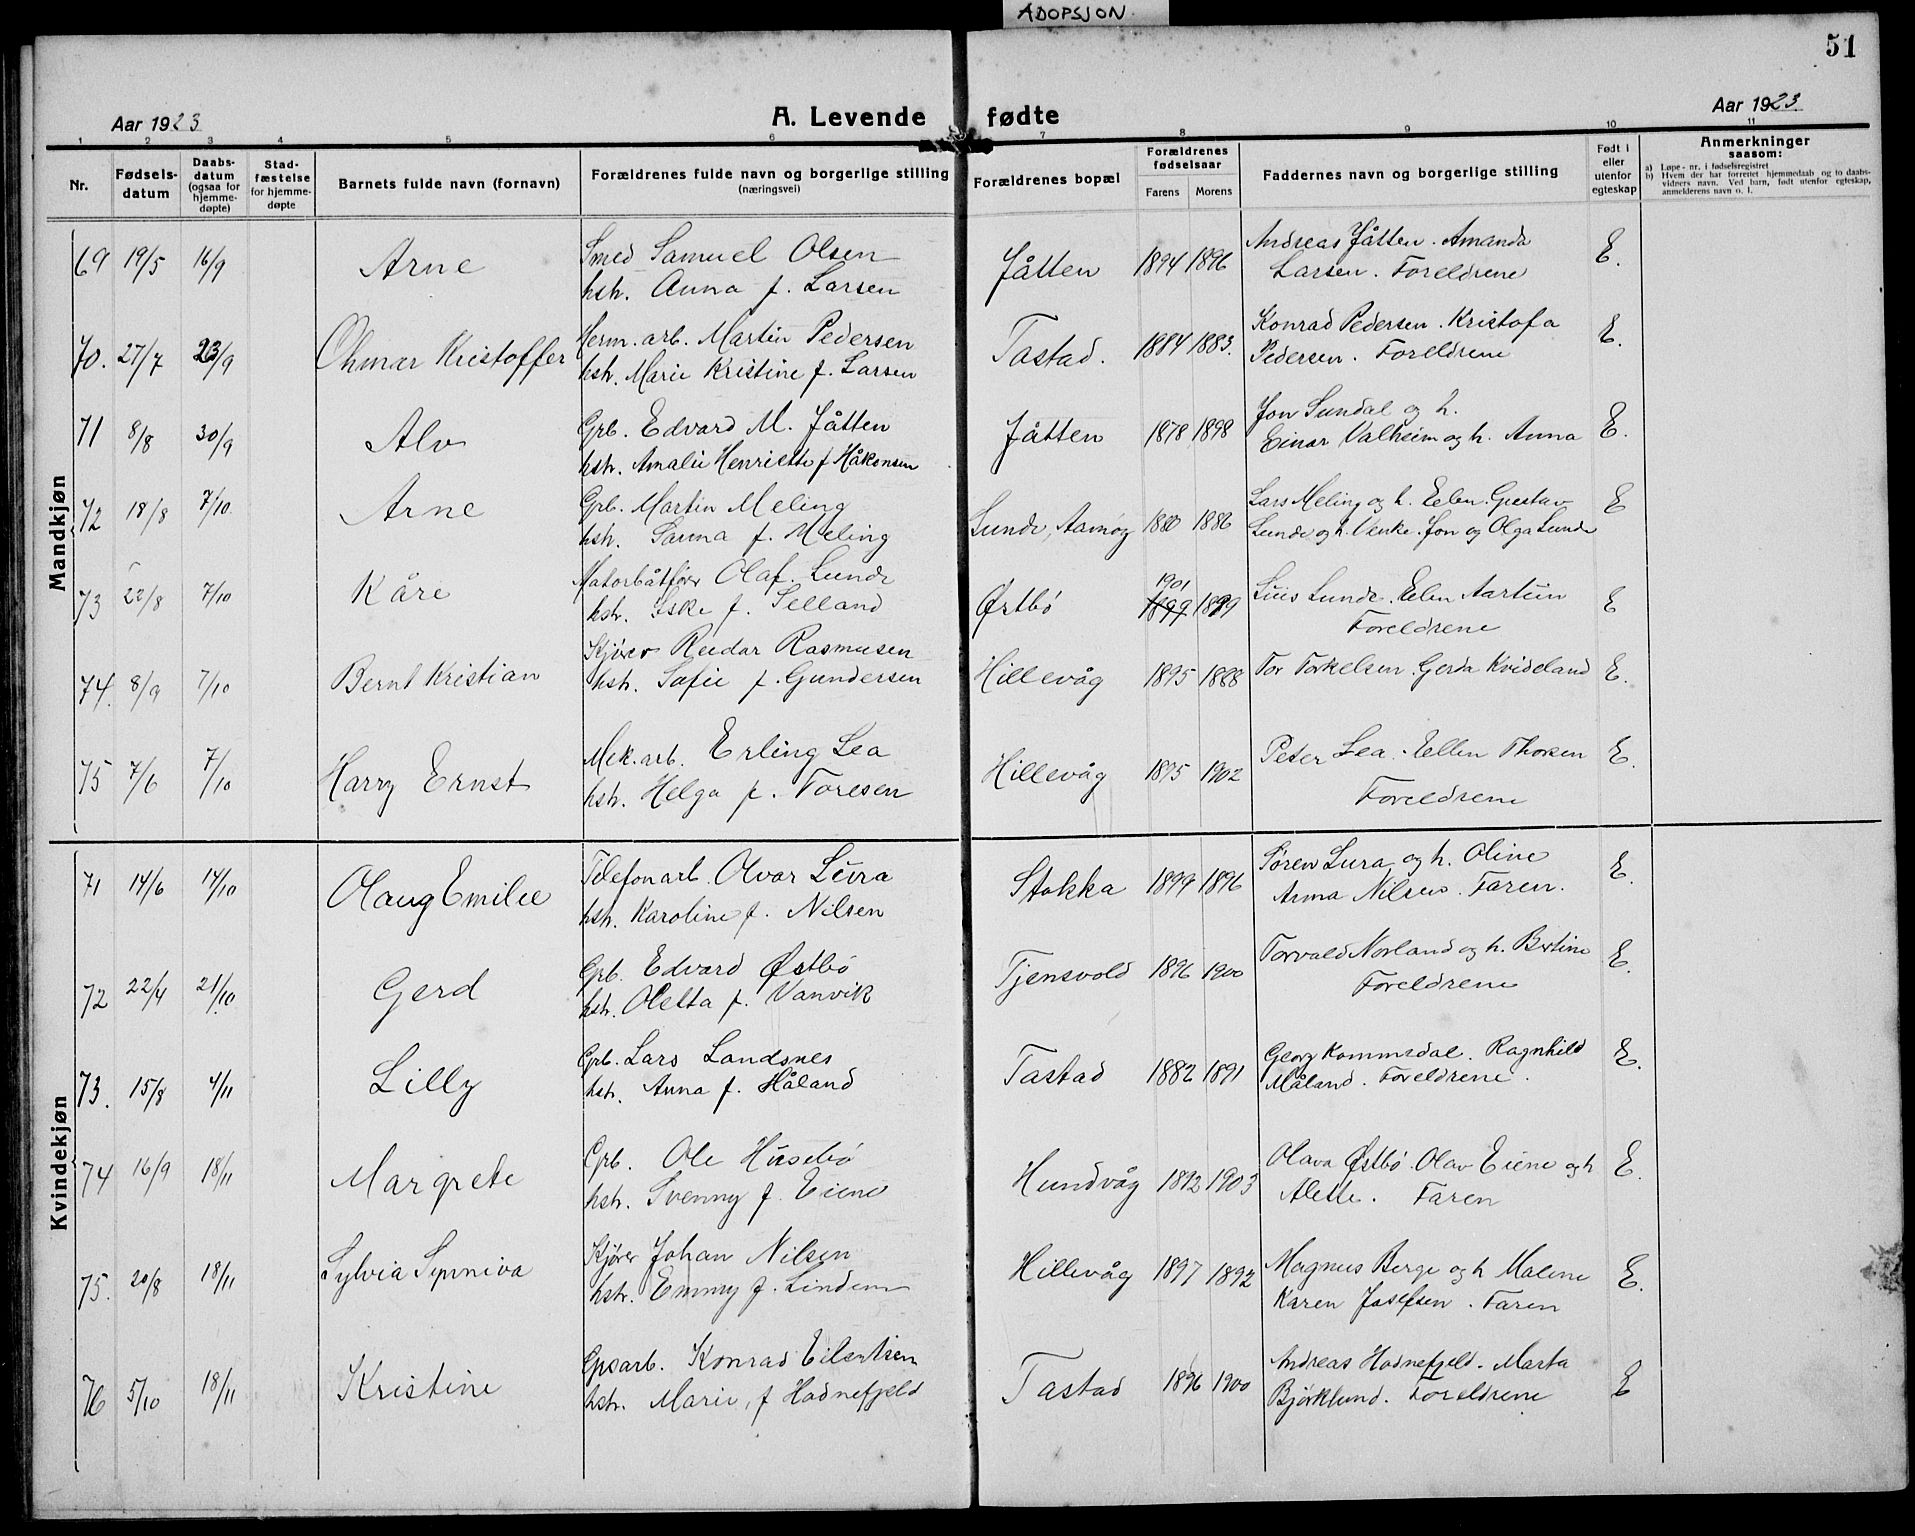 ADOPSJON.
51
Aar 1923
A. Levende fødte
Aar 1923
1 2 3 4 5 6 7 8 9 10 11
Nr.
Fødsels-
datum
Daabs-
datum
(ogsaa for
hjemme-
døpte)
Stad-
fæstelse
for hjemme-
døpte
Barnets fulde navn (fornavn)
Forældrenes fulde navn og borgerlige stilling
(næringsvei)
Forældrenes bopæl
Forældrenes
fødselsaar
Farens Morens
Faddernes navn og borgerlige stilling
Født i
eller
utenfor
egteskap
Anmerkninger
saasom:
a) Løpe-nr. i fødselsregistret
b) Hvem der har forrettet hjemmedaab og to daabs-
vidners navn. Ved barn, født utenfor egteskap,
anmelderens navn o. l.
Mandkjøn
69 19/5 16/9 Arne
Smed Samuel Olsen
hstr. Anna f. Larsen
Jåtten 1894 1896
Andreas Jåtten. Amanda
Larsen. Foreldrene
E.
70. 27/7 23/9 Ohmar Kristoffer
Herm. arb. Martin Pedersen
hstr. Marie Kristine f. Larsen
Tastad. 1884 1883.
Konrad Pedersen. Kristofa
Pedersen. Foreldrene
E.
71 8/8 30/9 Alv
Grb. Edvard M. Jåtten
hstr. Amalie Henriette f Håkonsen
Jåtten 1878 1898
Jon Sundal og h.
Einar Valheim og h. Anna
E.
72 18/8 7/10 Arne
Grb. Martin Meling
hstr. Sanna f. Meling
Sunde, Aamøy 1880 1886
Lars Meling og h. Elen. Gustav
Lunde og h. Venke. Jon og Olga Lunde
E
73 22/8 7/10 Kåre
Motorbåtfører Olaf Lunde
hstr. Eske f. Selland
Østbø 1901
1899 1899
Siris Lunde. Elen Aartun
Foreldrene
E
74. 8/9 7/10 Bernt Kristian
Kjører Reidar Rasmusen
hstr. Sofie f. Gundersen
Hillevåg 1895 1888
Tor Torkelsen. Gerda Kvideland
E.
75 7/6 7/10 Harry Ernst
Mek. arb. Erling Lea
hstr. Helga f. Toresen
Hillevåg 1895 1902
Peter Lea. Ellen Thorsen
Foreldrene
E.
Kvindekjøn
71 14/6 14/10 Olaug Emilie
Telefonarb. Olvar Lura
hstr. Karoline f. Nilsen
Stokka 1899 1896
Søren Lura og h. Oline
Anna Nilsen. Faren.
E.
72 22/4 21/10 Gerd
Grb. Edvard Østbø
hstr. Oletta f. Vanvik
Tjensvold 1896 1900
Torvald Norland og h. Bertine
Foreldrene
E.
73. 15/8 4/11 Lilly
Grb. Lars Landsnes
hstr. Anna f. Håland
Tastad 1882 1891
Georg Kommedal. Ragnhild
Måland. Foreldrene.
E.
74 16/9 18/11 Margrete
Grb. Ole Husebø
hstr. Svenny f. Eiene
Hundvåg 1892 1903
Olava Østbø. Olav Eiene og h
Alette. Faren
E.
75. 20/8 18/11 Sylvia Synniva
Kjører Johan Nilsen
hstr. Emmy f. Lindem
Hillevåg 1897 1892
Magnus Berge og h Malene
Karen Josefsen. Faren
E.
76 5/10 18/11 Kristine
Gpsarb. Konrad Eilertsen
hstr. Marie, f Hodnefjeld
Tastad 1896 1900
Andreas Hodnefjeld. Marta
Bjørklund. Foreldrene
E